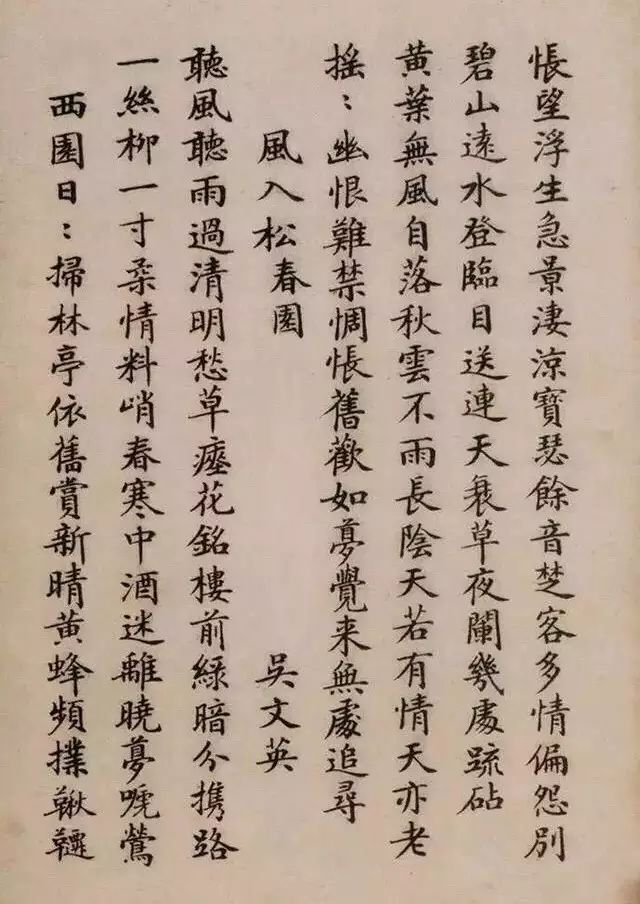 悵望浮生急景淒涼寶瑟餘音楚客多情偏怨別
碧山遠水登臨目送連天衰草夜闌幾處疏砧
黃葉無風自落秋雲不雨長陰天若有情天亦老
搖：幽恨難禁惆悵舊歡如夢覺来無處追尋
風入松春園 吳文英
聽風聽雨過清明愁草瘞花銘樓前綠暗分携路
一絲柳一寸柔情料峭春寒中酒迷離曉夢嗁鶯
西園日：掃林亭依舊賞新晴黃蜂頻撲鞦韆